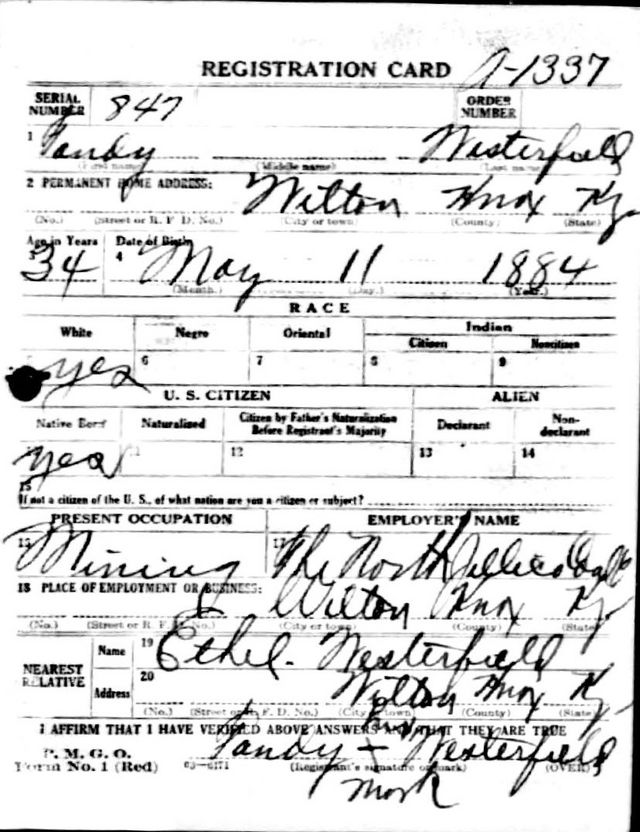 REGISTRATION CARD A-1337
SERIAL NUMBER 847 ORDER NUMBER
1 Sandy Westerfield
(First name) (Middle name) (Last name)
2 PERMANENT HOME ADDRESS: Wilton Knox Ky
(No.) (Street or R. F. D. No.) (City or town) (County) (State)
Age in Years Date of Birth
3 34 4 May 11 1884
(Month.) (Day.) (Year.)
RACE
White Negro Oriental Indian
Citizen Noncitizen
yes 6 7 8 9
U. S. CITIZEN ALIEN
Native Born Naturalized Citizen by Father's Naturalization Before Registrant's Majority Declarant Non-declarant
yes 11 12 13 14
15
If not a citizen of the U. S., of what nation are you a citizen or subject?
PRESENT OCCUPATION EMPLOYER'S NAME
Mining 17 The North Jellico
18 PLACE OF EMPLOYMENT OR BUSINESS:
Wilton Knox Ky
(No.) (Street or R. F. D. No.) (City or town) (County) (State)
NEAREST RELATIVE Name 19 Ethel Westerfield
Address 20 Wilton Knox Ky
(No.) (Street or R. F. D. No.) (City or town) (County) (State)
I AFFIRM THAT I HAVE VERIFIED ABOVE ANSWERS AND THAT THEY ARE TRUE
P. M. G. O.
Form No. 1 (Red) 03-6171 Sandy his + Westerfield
(Registrant's signature or mark) (OVER)
mark